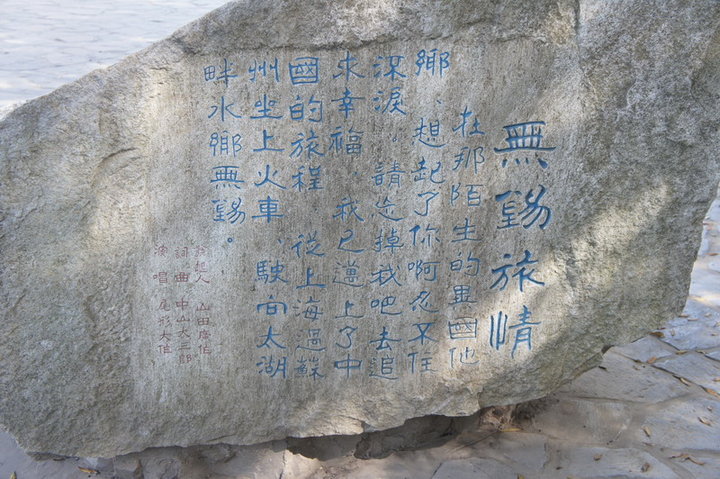 無錫旅情
在那陌生的異國他
鄉、想起了你啊忍不住
流淚。請忘掉我吧去追
求幸福，我已邁上了中
國的旅程 從上海過蘇
州坐上火車、駛向太湖
畔水鄉無錫。
人 山田廣作
詞曲 中山大三郎
演唱 尾形大作